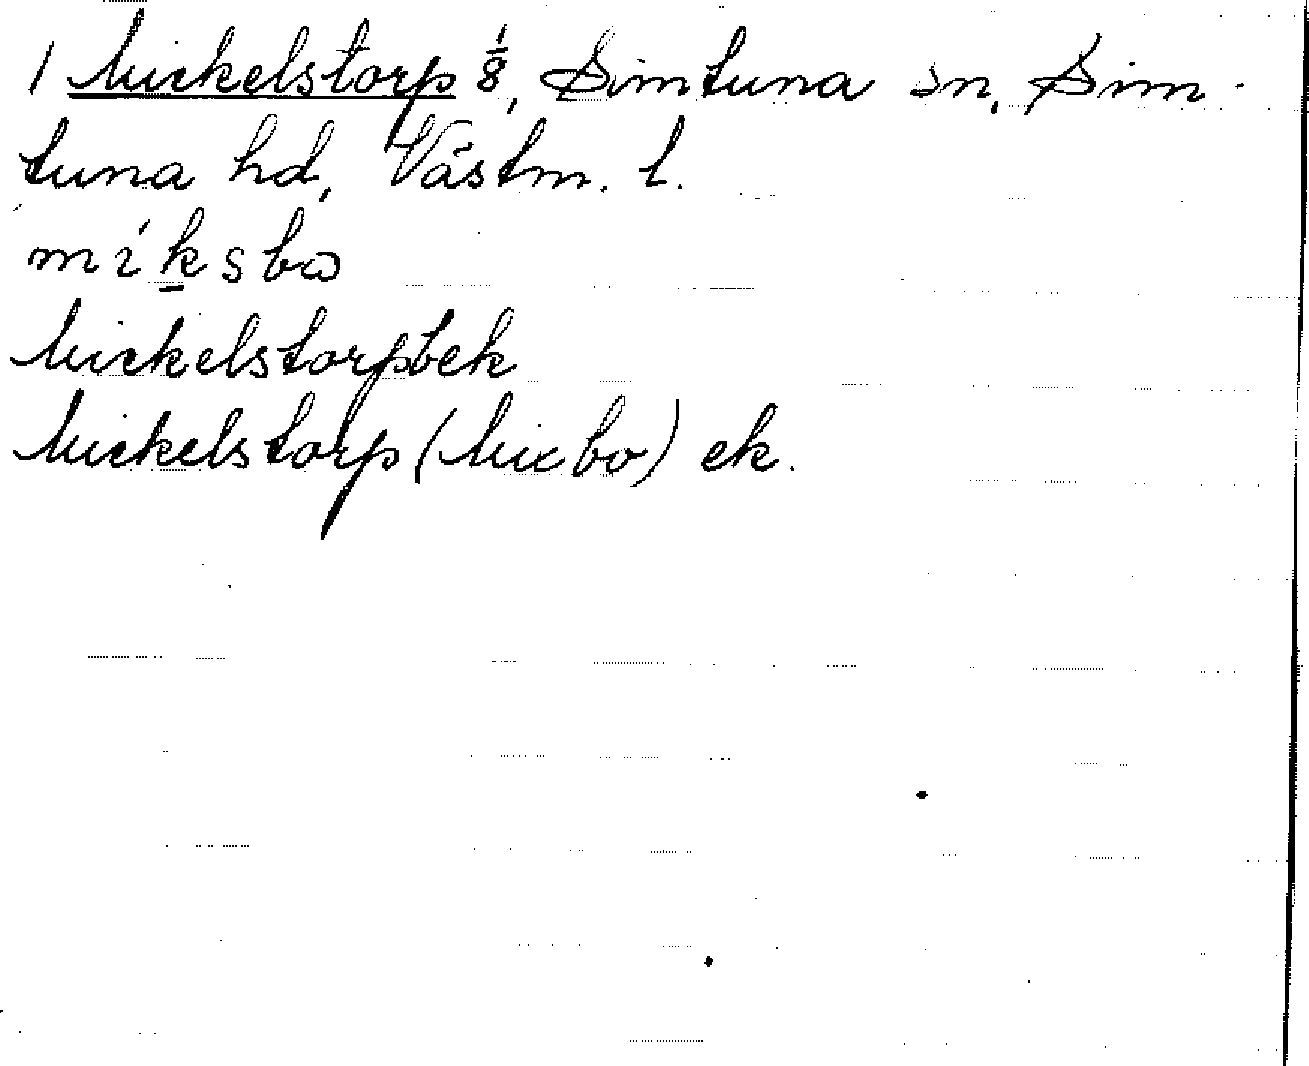 1 Mickelstorp 1/8, Simtuna sn, Sim-
tuna hd, Västm. l.
míksbω
Mickelstorp bek
Mickelstorp (Mixbo) ek.